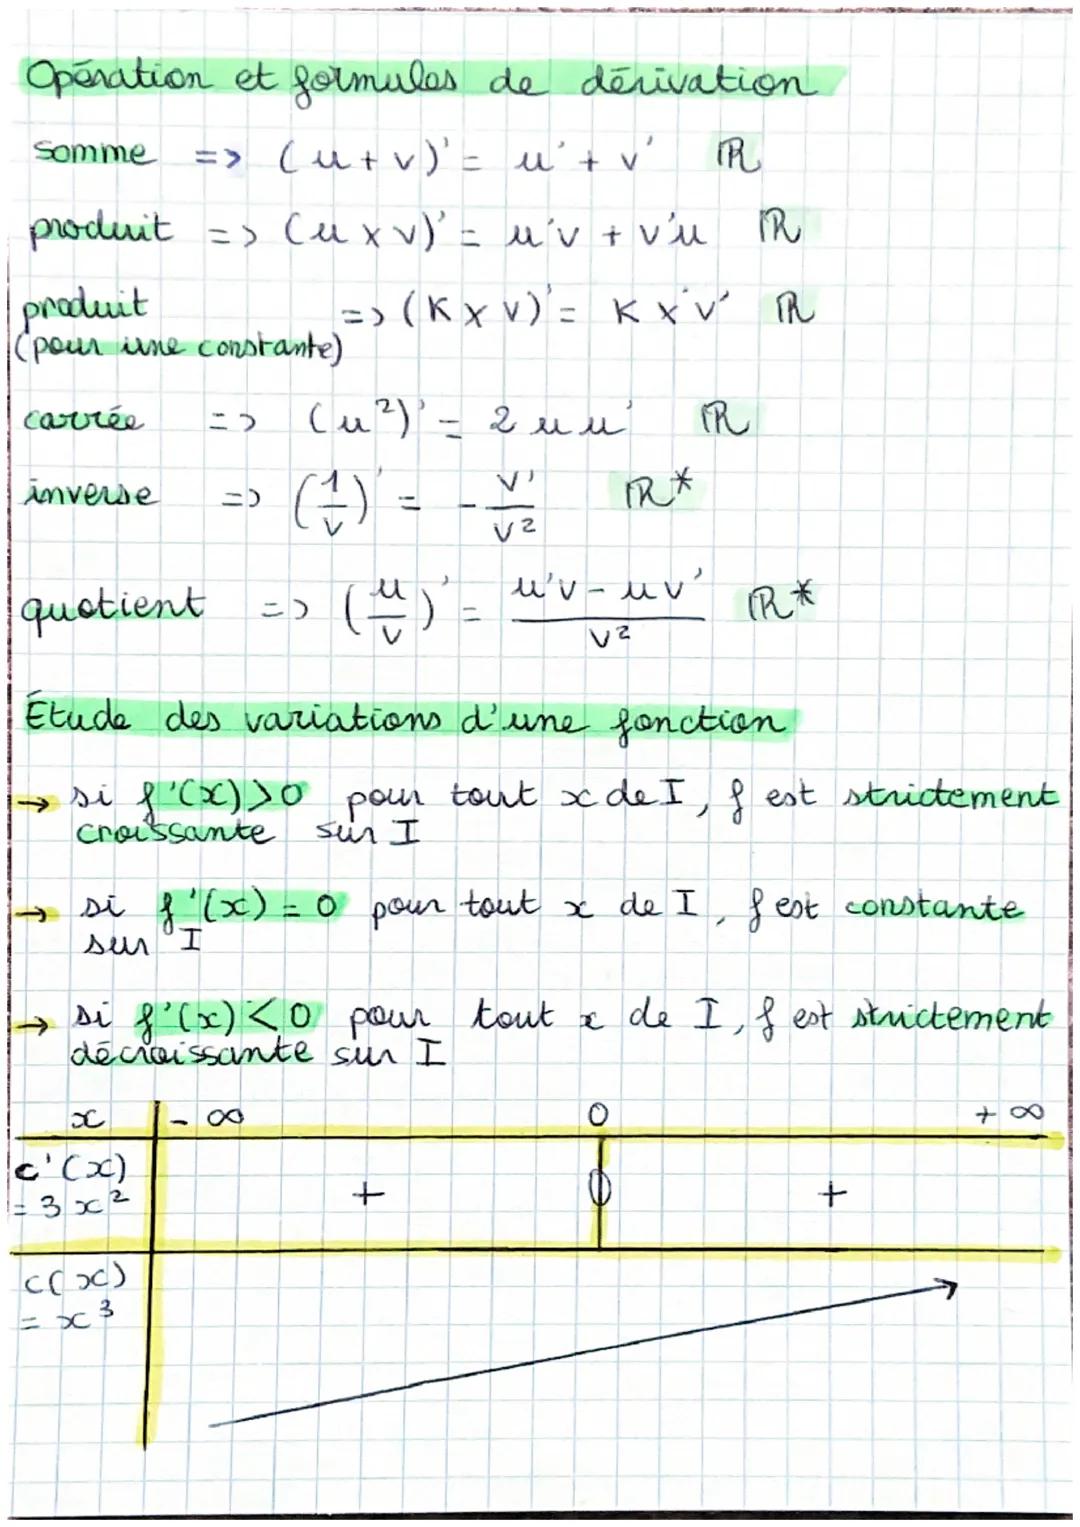 Opération et formules de dérivation
somme => (u + v)' = u' + v' ℝ
produit => (u x v)' = u'v + v'u ℝ
produit (pour une constante) => (K x v)' = K x v' ℝ
carrée => (u²)' = 2 u u' ℝ
inverse => (1/v)' = - v'/v² ℝ*
quotient => (u/v)' = (u'v - uv')/v² ℝ*
Étude des variations d'une fonction
→ si f'(x)>0 pour tout x de I, f est strictement
croissante sur I
→ si f'(x) = 0 pour tout x de I, f est constante
sur I
→ si f'(x) < 0 pour tout x de I, f est strictement
décroissante sur I
x - ∞ 0 + ∞
c'(x)
= 3x² + 0 +
c(x)
= x³